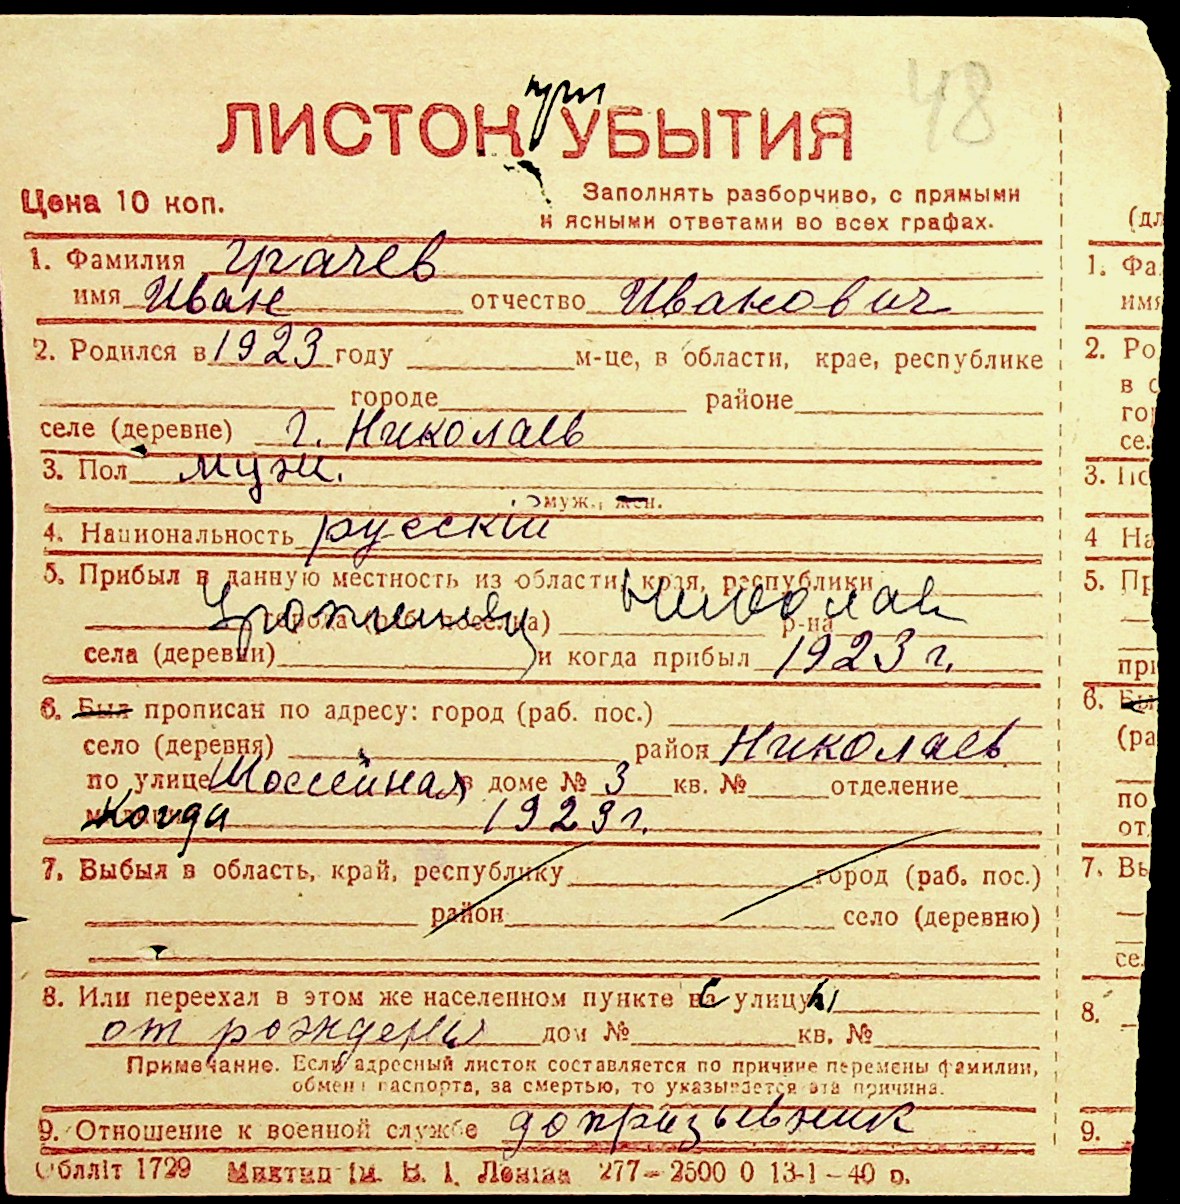 48
при
ЛИСТОК УБЫТИЯ
Цена 10 коп.
Заполнять разборчиво, с прямыми
и ясными ответами во всех графах.
1. Фамилия Грачев
имя Иван отчество Иванович
2. Родился в 1923 году м-це, в области, крае, республике
городе районе
селе (деревне) г. Николаев
3. Пол муж.
муж., жен.
4. Национальность русский
5. Прибыл в данную местность из области, края, республики
Уроженец Николаев
города (раб. поселка) р-на
села (деревни) и когда прибыл 1923 г.
6. Был прописан по адресу: город (раб. пос.)
село (деревня) район Николаев
по улице Шоссейная в доме № 3 кв. № отделение
Когда 1923 г.
7. Выбыл в область, край, республику город (раб. пос.)
район село (деревню)
8. Или переехал в этом же населенном пункте с улицы
от рождения дом № кв. №
Примечание. Если адресный листок составляется по причине перемены фамилии,
обмена паспорта, за смертью, то указывается эта причина.
9. Отношение к военной службе допризывник
Обліт 1729 Миктип ім. В. І. Леніна 277—2500 0 13-1-40 р.
(дл
1. Фа
имя
2. Ро
в о
гор
се.
3. По
4 На
5. Пр
при
6. Бы
(ра
по
от
7. Вы
се.
8.
9.